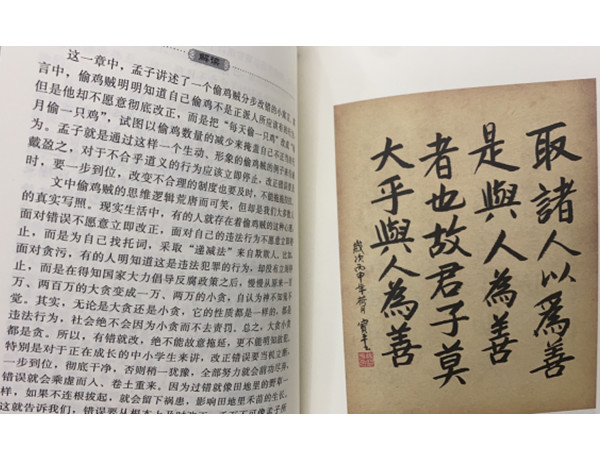 解惑
这一章中，孟子讲述了一个偷鸡贼分步改错的小
言中，偷鸡贼明明知道自己偷鸡不是正派人所应
但是他却不愿意彻底改正，而是把“每天偷一只鸡”
月偷一只鸡”，试图以偷鸡数量的减少来掩盖自己不
为。孟子就是通过这样一个生动、形象的偷鸡贼的例子来
戴盈之，对于不合乎道义的行为应该立即停止，改正错误
时，要一步到位，改变不合理的制度也要及时，不能拖拖
文中偷鸡贼的思维逻辑荒唐而可笑，但却是我们大多数人
的真实写照。现实生活中，有的人就存在着偷鸡贼的这种心
面对错误不愿意立即改正，面对自己的违法行为不愿意立即
止，而是为自己找托词，采取“递减法”来自欺欺人。比如，
面对贪污，有的人明知道这是违法犯罪的行为，却没有立刻停
止，而是在得知国家大力倡导反腐政策之后，慢慢从原来一
万、两百万的大贪变成一万、两万的小贪，自认为神不知鬼不
觉。其实，无论是大贪还是小贪，它的性质都是一样的，都是
违法行为，社会绝不会因为小贪而不去责罚。总之，大贪小贪
都是贪。所以，有错就改，绝不能故意拖延，更不能明知故犯。
特别是对于正在成长的中小学生来讲，改正错误要当机立断，
一步到位，彻底干净，否则稍一犹豫，全部努力就会前功尽弃，
错误就会乘虚而入、卷土重来。因为过错就像田地里的野草一
样，如果不连根拔起，就会留下祸患，影响田地里禾苗的生长。
这就告诉我们，错误要从根本上及时改正，千万不可像孟子所
取諸人以為善
是與人為善
者也故君子莫
大乎與人為善
歲次丙申年